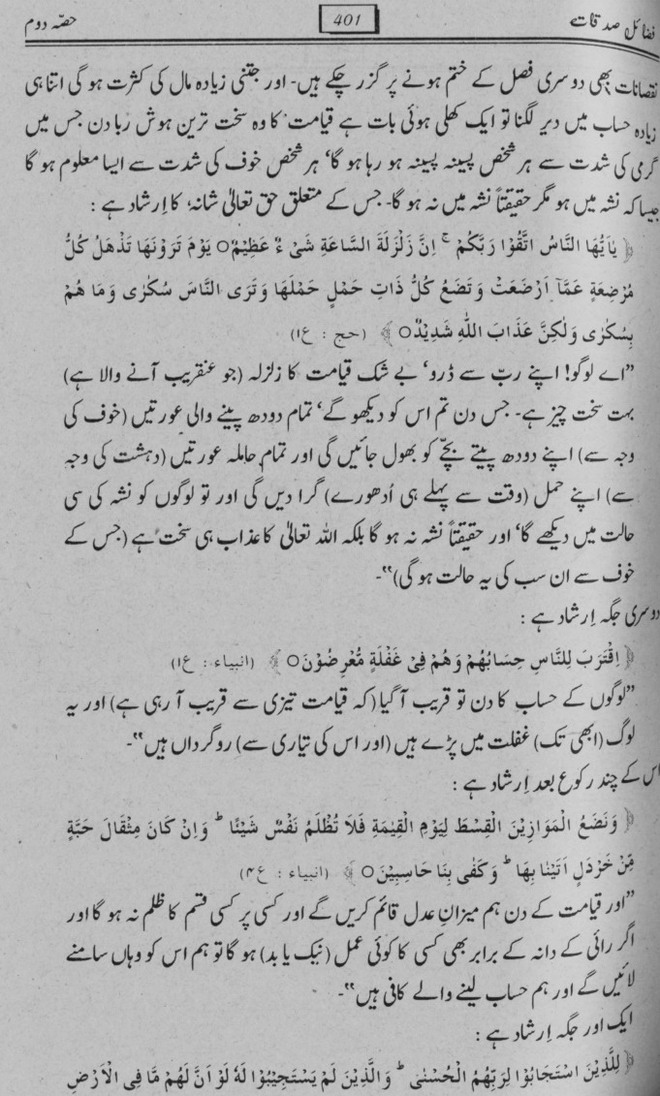 فضائل صدقات 401 حصّہ دوم
نقصانات بھی دوسری فصل کے ختم ہونے پر گزر چکے ہیں۔ اور جتنی زیادہ مال کی کثرت ہو گی اتنا ہی
زیادہ حساب میں دیر لگنا تو ایک کھلی ہوئی بات ہے قیامت کا وہ سخت ترین ہوش ربا دن جس میں
گرمی کی شدت سے ہر شخص پسینہ پسینہ ہو رہا ہو گا‘ ہر شخص خوف کی شدت سے ایسا معلوم ہو گا
جیسا کہ نشہ میں ہو مگر حقیقتاً نشہ میں نہ ہو گا۔ جس کے متعلق حق تعالیٰ شانہٗ کا اِرشاد ہے :
﴿ یٰاَیُّهَا النَّاسُ اتَّقُوْا رَبَّكُمْ ۚ اِنَّ زَلْزَلَةَ السَّاعَةِ شَیْءٌ عَظِیْمٌ○ یَوْمَ تَرَوْنَهَا تَذْهَلُ كُلُّ
مُرْضِعَةٍ عَمَّآ اَرْضَعَتْ وَتَضَعُ كُلُّ ذَاتِ حَمْلٍ حَمْلَهَا وَتَرَی النَّاسَ سُكٰرٰی وَمَا هُمْ
بِسُكٰرٰی وَلٰكِنَّ عَذَابَ اللّٰهِ شَدِیْدٌ○ ﴾ (حج : ع۱)
”اے لوگو! اپنے ربّ سے ڈرو‘ بے شک قیامت کا زلزلہ (جو عنقریب آنے والا ہے)
بہت سخت چیز ہے۔ جس دن تم اس کو دیکھو گے‘ تمام دودھ پینے والی عورتیں (خوف کی
وجہ سے) اپنے دودھ پیتے بچّے کو بھول جائیں گی اور تمام حاملہ عورتیں (دہشت کی وجہ
سے) اپنے حمل (وقت سے پہلے ہی اُدھورے) گرا دیں گی اور تو لوگوں کو نشہ کی سی
حالت میں دیکھے گا‘ اور حقیقتاً نشہ نہ ہو گا بلکہ اللہ تعالیٰ کا عذاب ہی سخت ہے (جس کے
خوف سے ان سب کی یہ حالت ہو گی)“۔
دوسری جگہ اِرشاد ہے :
﴿ اِقْتَرَبَ لِلنَّاسِ حِسَابُهُمْ وَهُمْ فِیْ غَفْلَةٍ مُّعْرِضُوْنَ○ ﴾ (انبیاء : ع۱)
”لوگوں کے حساب کا دن تو قریب آ گیا (کہ قیامت تیزی سے قریب آ رہی ہے) اور یہ
لوگ (ابھی تک) غفلت میں پڑے ہیں (اور اس کی تیاری سے) روگرداں ہیں“۔
اس کے چند رکوع بعد اِرشاد ہے :
﴿ وَنَضَعُ الْمَوَازِیْنَ الْقِسْطَ لِیَوْمِ الْقِیٰمَةِ فَلَا تُظْلَمُ نَفْسٌ شَیْئًا ؕ وَاِنْ كَانَ مِثْقَالَ حَبَّةٍ
مِّنْ خَرْدَلٍ اَتَیْنَا بِهَا ؕ وَكَفٰی بِنَا حَاسِبِیْنَ○ ﴾ (انبیاء : ع۴)
”اور قیامت کے دن ہم میزانِ عدل قائم کریں گے اور کسی پر کسی قسم کا ظلم نہ ہو گا اور
اگر رائی کے دانہ کے برابر بھی کسی کا کوئی عمل (نیک یا بد) ہو گا تو ہم اس کو وہاں سامنے
لائیں گے اور ہم حساب لینے والے کافی ہیں“۔
ایک اور جگہ اِرشاد ہے :
﴿ لِلَّذِیْنَ اسْتَجَابُوْا لِرَبِّهِمُ الْحُسْنٰی ؕ وَالَّذِیْنَ لَمْ یَسْتَجِیْبُوْا لَهٗ لَوْ اَنَّ لَهُمْ مَّا فِی الْاَرْضِ